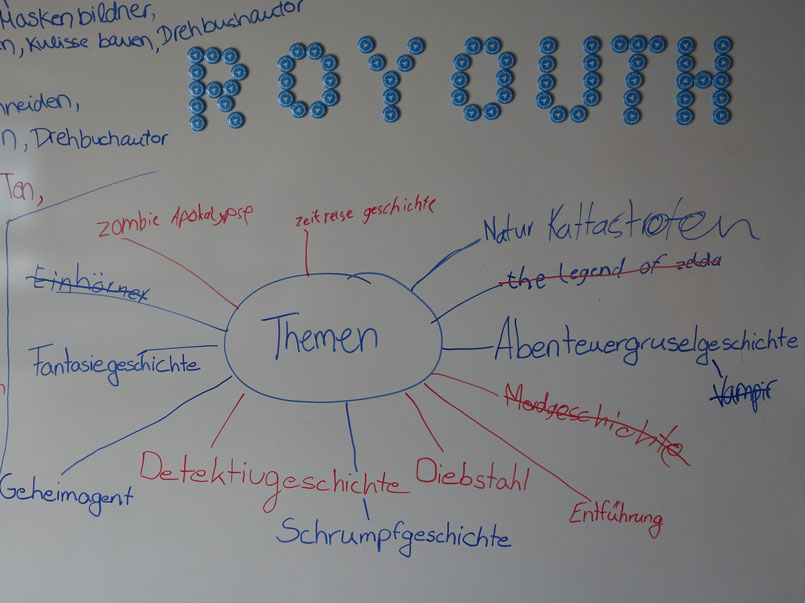 Maskenbildner,
n, Kulisse bauen, Drehbuchautor
ROYOUTH
neiden,
n, Drehbuchautor
Ton,
zombie Apokalypse
zeitreise geschichte
Natur Kattastrofen
Einhörner
the legend of zelda
Themen
Abenteuergruselgeschichte
Fantasiegeschichte
Vampir
Mordgeschichte
Geheimagent
Detektivgeschichte
Diebstahl
Entführung
Schrumpfgeschichte